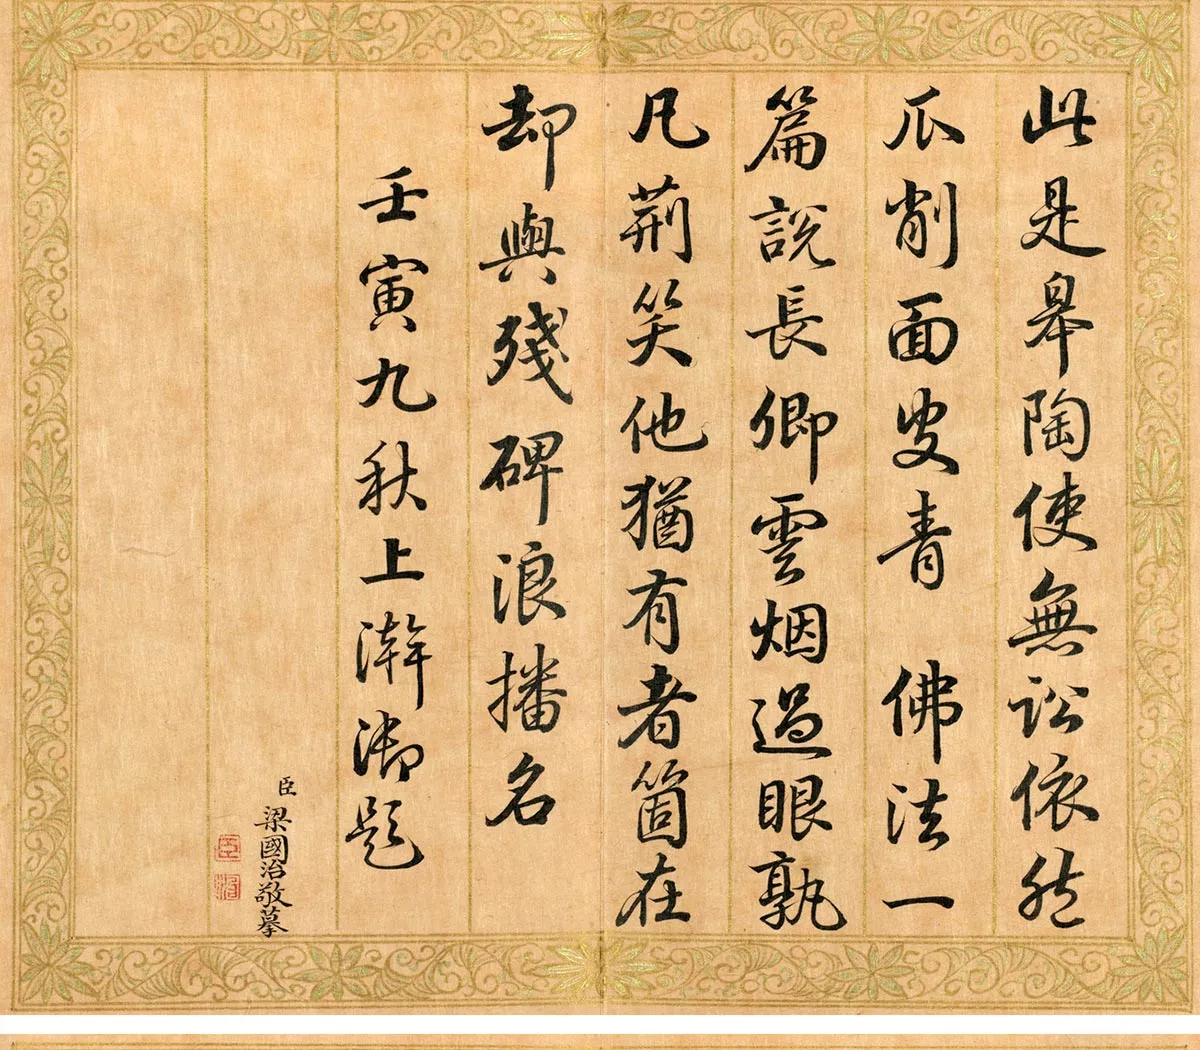 此是皋陶使無訟依然
瓜削面叟青 佛法一
篇說長卿雲烟過眼孰
凡荊笑他猶有者箇在
却與殘碑浪播名
壬寅九秋上澣御題
臣梁國治敬摹
臣
治